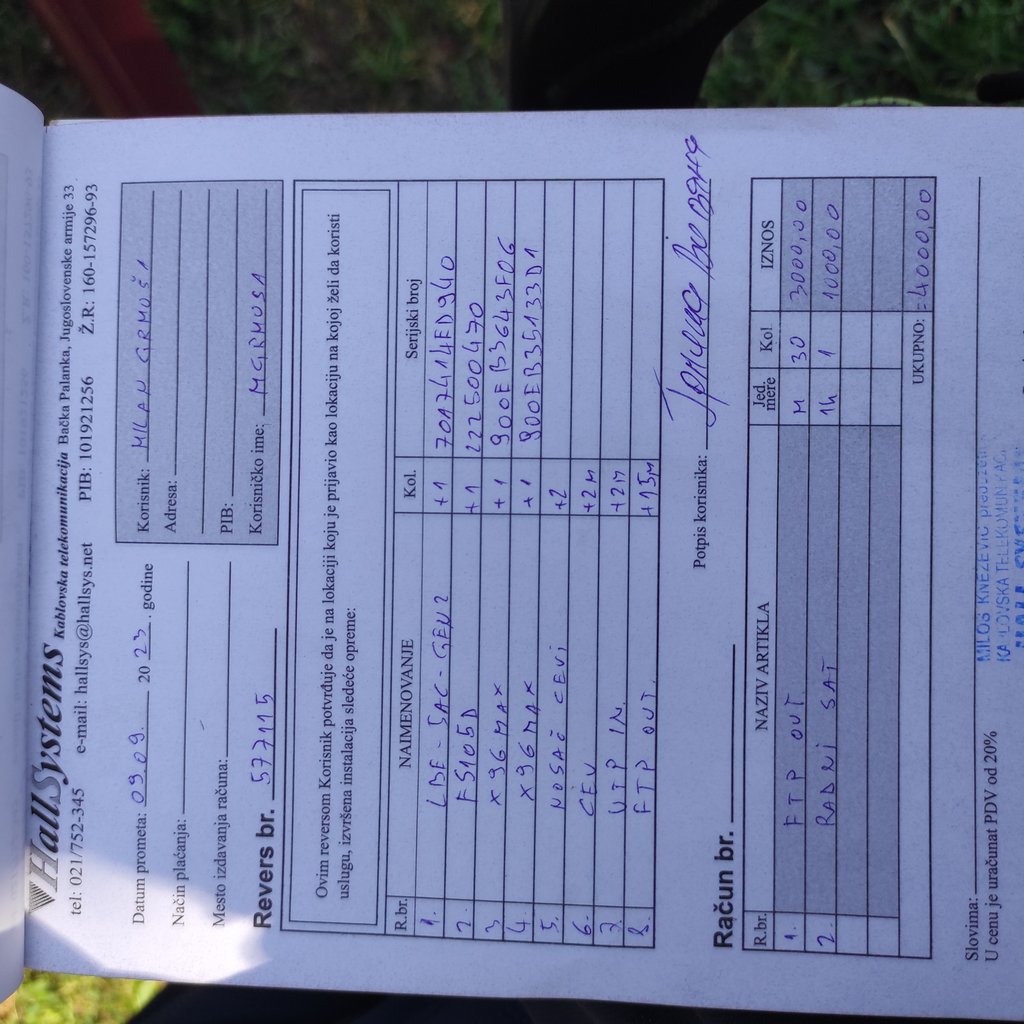 HallSystems Kablovska telekomunikacija Bačka Palanka, Jugoslovenske armije 33
tel: 021/752-345 e-mail: hallsys@hallsys.net PIB: 101921256 Ž.R: 160-157296-93
Datum prometa: 09.09. 20 23. godine
Način plaćanja:
Mesto izdavanja računa:
Revers br. 577115
Korisnik: MILAN GRMUŠ1
Adresa:
PIB:
Korisničko ime: MGRMUS1
Ovim reversom Korisnik potvrđuje da je na lokaciji koju je prijavio kao lokaciju na kojoj želi da koristi
uslugu, izvršena instalacija sledeće opreme:
R.br. NAIMENOVANJE Kol. Serijski broj
1. LBE-5AC-GEN2 +1 70A7414ED940
2. FS105D +1 222500470
3 X96 MAX +1 900EB3643F06
4. X96MAX +1 900EB35133D1
5. NOSAČ CEVI +2
6. CEV +2M
7. UTP IN +2M
8. FTP OUT. +15M
Potpis korisnika:
Račun br.
R.br. NAZIV ARTIKLA Jed. mere Kol. IZNOS
1. FTP OUT M 30 3000,00
2. RADNI SAT 1h 1 1000,00
UKUPNO: =4000,00
Slovima:
U cenu je uračunat PDV od 20%
MILOŠ KNEŽEVIĆ
KABLOVSKA TELEKOMUNIKAC.